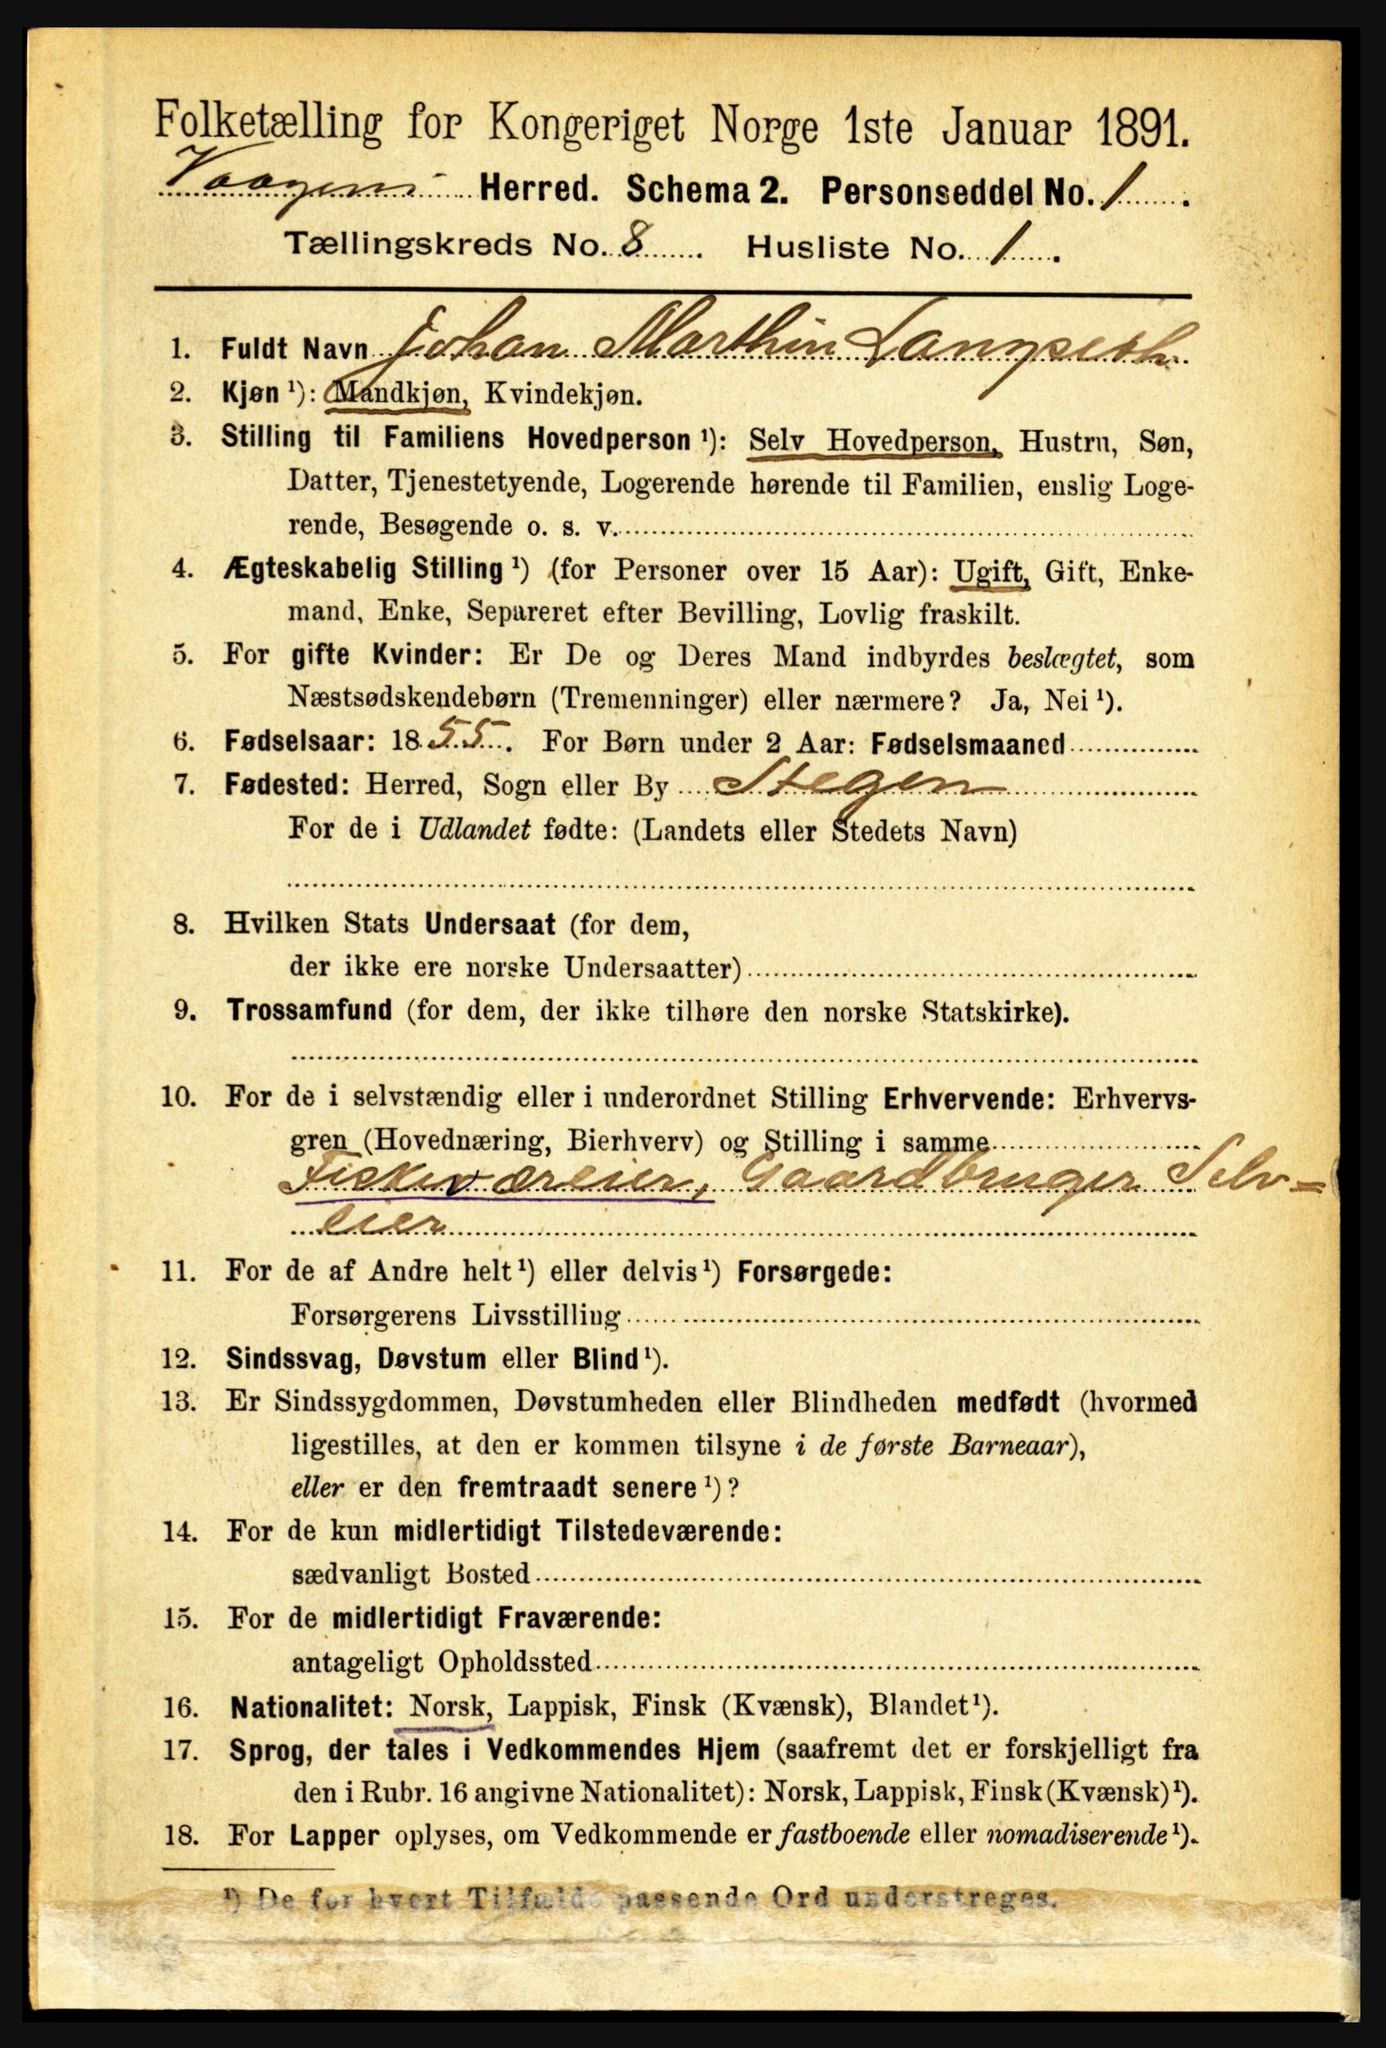 Folketælling for Kongeriget Norge 1ste Januar 1891.
Vaagens Herred. Schema 2. Personseddel No. 1.
Tællingskreds No. 8. Husliste No. 1.
1. Fuldt Navn Johan Marthin
2. Kjøn ¹): Mandkjøn, Kvindekjøn.
3. Stilling til Familiens Hovedperson ¹): Selv Hovedperson, Hustru, Søn,
Datter, Tjenestetyende, Logerende hørende til Familien, enslig Loge-
rende, Besøgende o. s. v.
4. Ægteskabelig Stilling ¹) (for Personer over 15 Aar): Ugift, Gift, Enke-
mand, Enke, Separeret efter Bevilling, Lovlig fraskilt.
5. For gifte Kvinder: Er De og Deres Mand indbyrdes beslægtet, som
Næstsødskendebørn (Tremenninger) eller nærmere? Ja, Nei ¹).
6. Fødselsaar: 1855. For Børn under 2 Aar: Fødselsmaaned
7. Fødested: Herred, Sogn eller By Stegen
For de i Udlandet fødte: (Landets eller Stedets Navn)
8. Hvilken Stats Undersaat (for dem,
der ikke ere norske Undersaatter)
9. Trossamfund (for dem, der ikke tilhøre den norske Statskirke).
10. For de i selvstændig eller i underordnet Stilling Erhvervende: Erhvervs-
gren (Hovednæring, Bierhverv) og Stilling i samme
Fiskeværeier, Gaardbruger Selv=
eier
11. For de af Andre helt ¹) eller delvis ¹) Forsørgede:
Forsørgerens Livsstilling
12. Sindssvag, Døvstum eller Blind ¹).
13. Er Sindssygdommen, Døvstumheden eller Blindheden medfødt (hvormed
ligestilles, at den er kommen tilsyne i de første Barneaar),
eller er den fremtraadt senere ¹)?
14. For de kun midlertidigt Tilstedeværende:
sædvanligt Bosted
15. For de midlertidigt Fraværende:
antageligt Opholdssted
16. Nationalitet: Norsk, Lappisk, Finsk (Kvænsk), Blandet ¹).
17. Sprog, der tales i Vedkommendes Hjem (saafremt det er forskjelligt fra
den i Rubr. 16 angivne Nationalitet): Norsk, Lappisk, Finsk (Kvænsk) ¹).
18. For Lapper oplyses, om Vedkommende er fastboende eller nomadiserende ¹).
¹) De for hvert Tilfælde passende Ord understreges.